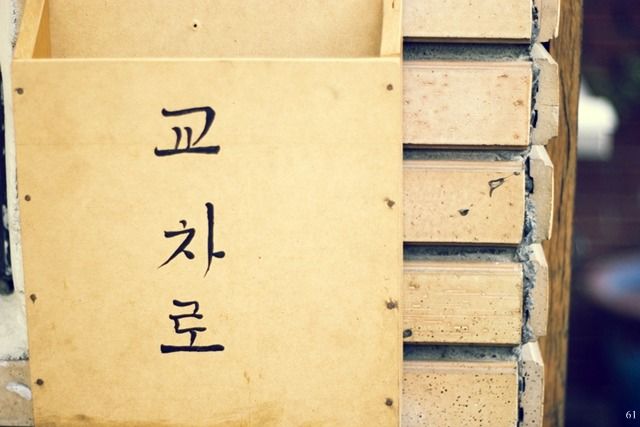 교차로
61